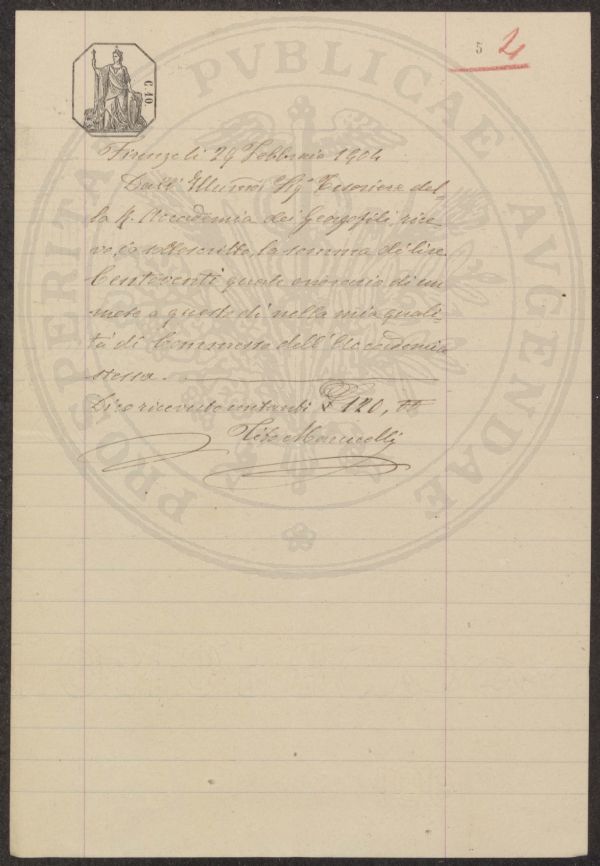 5 2
C. 10.
PROSPERITATI PVBLICAE AVGENDAE
Firenze li 29 Febbraio 1904
Dall' Illumõ Sigr Tesoriere del-
la R. Accademia dei Georgofili, rice-
vo io sottoscritto, la somma di lire
Centoventi quale onorario di un
mese a questo dì nella mia quali-
tà di Commesso dell'Accademia
stessa.
Dico ricevute contanti £ 120,
Tito Marucelli